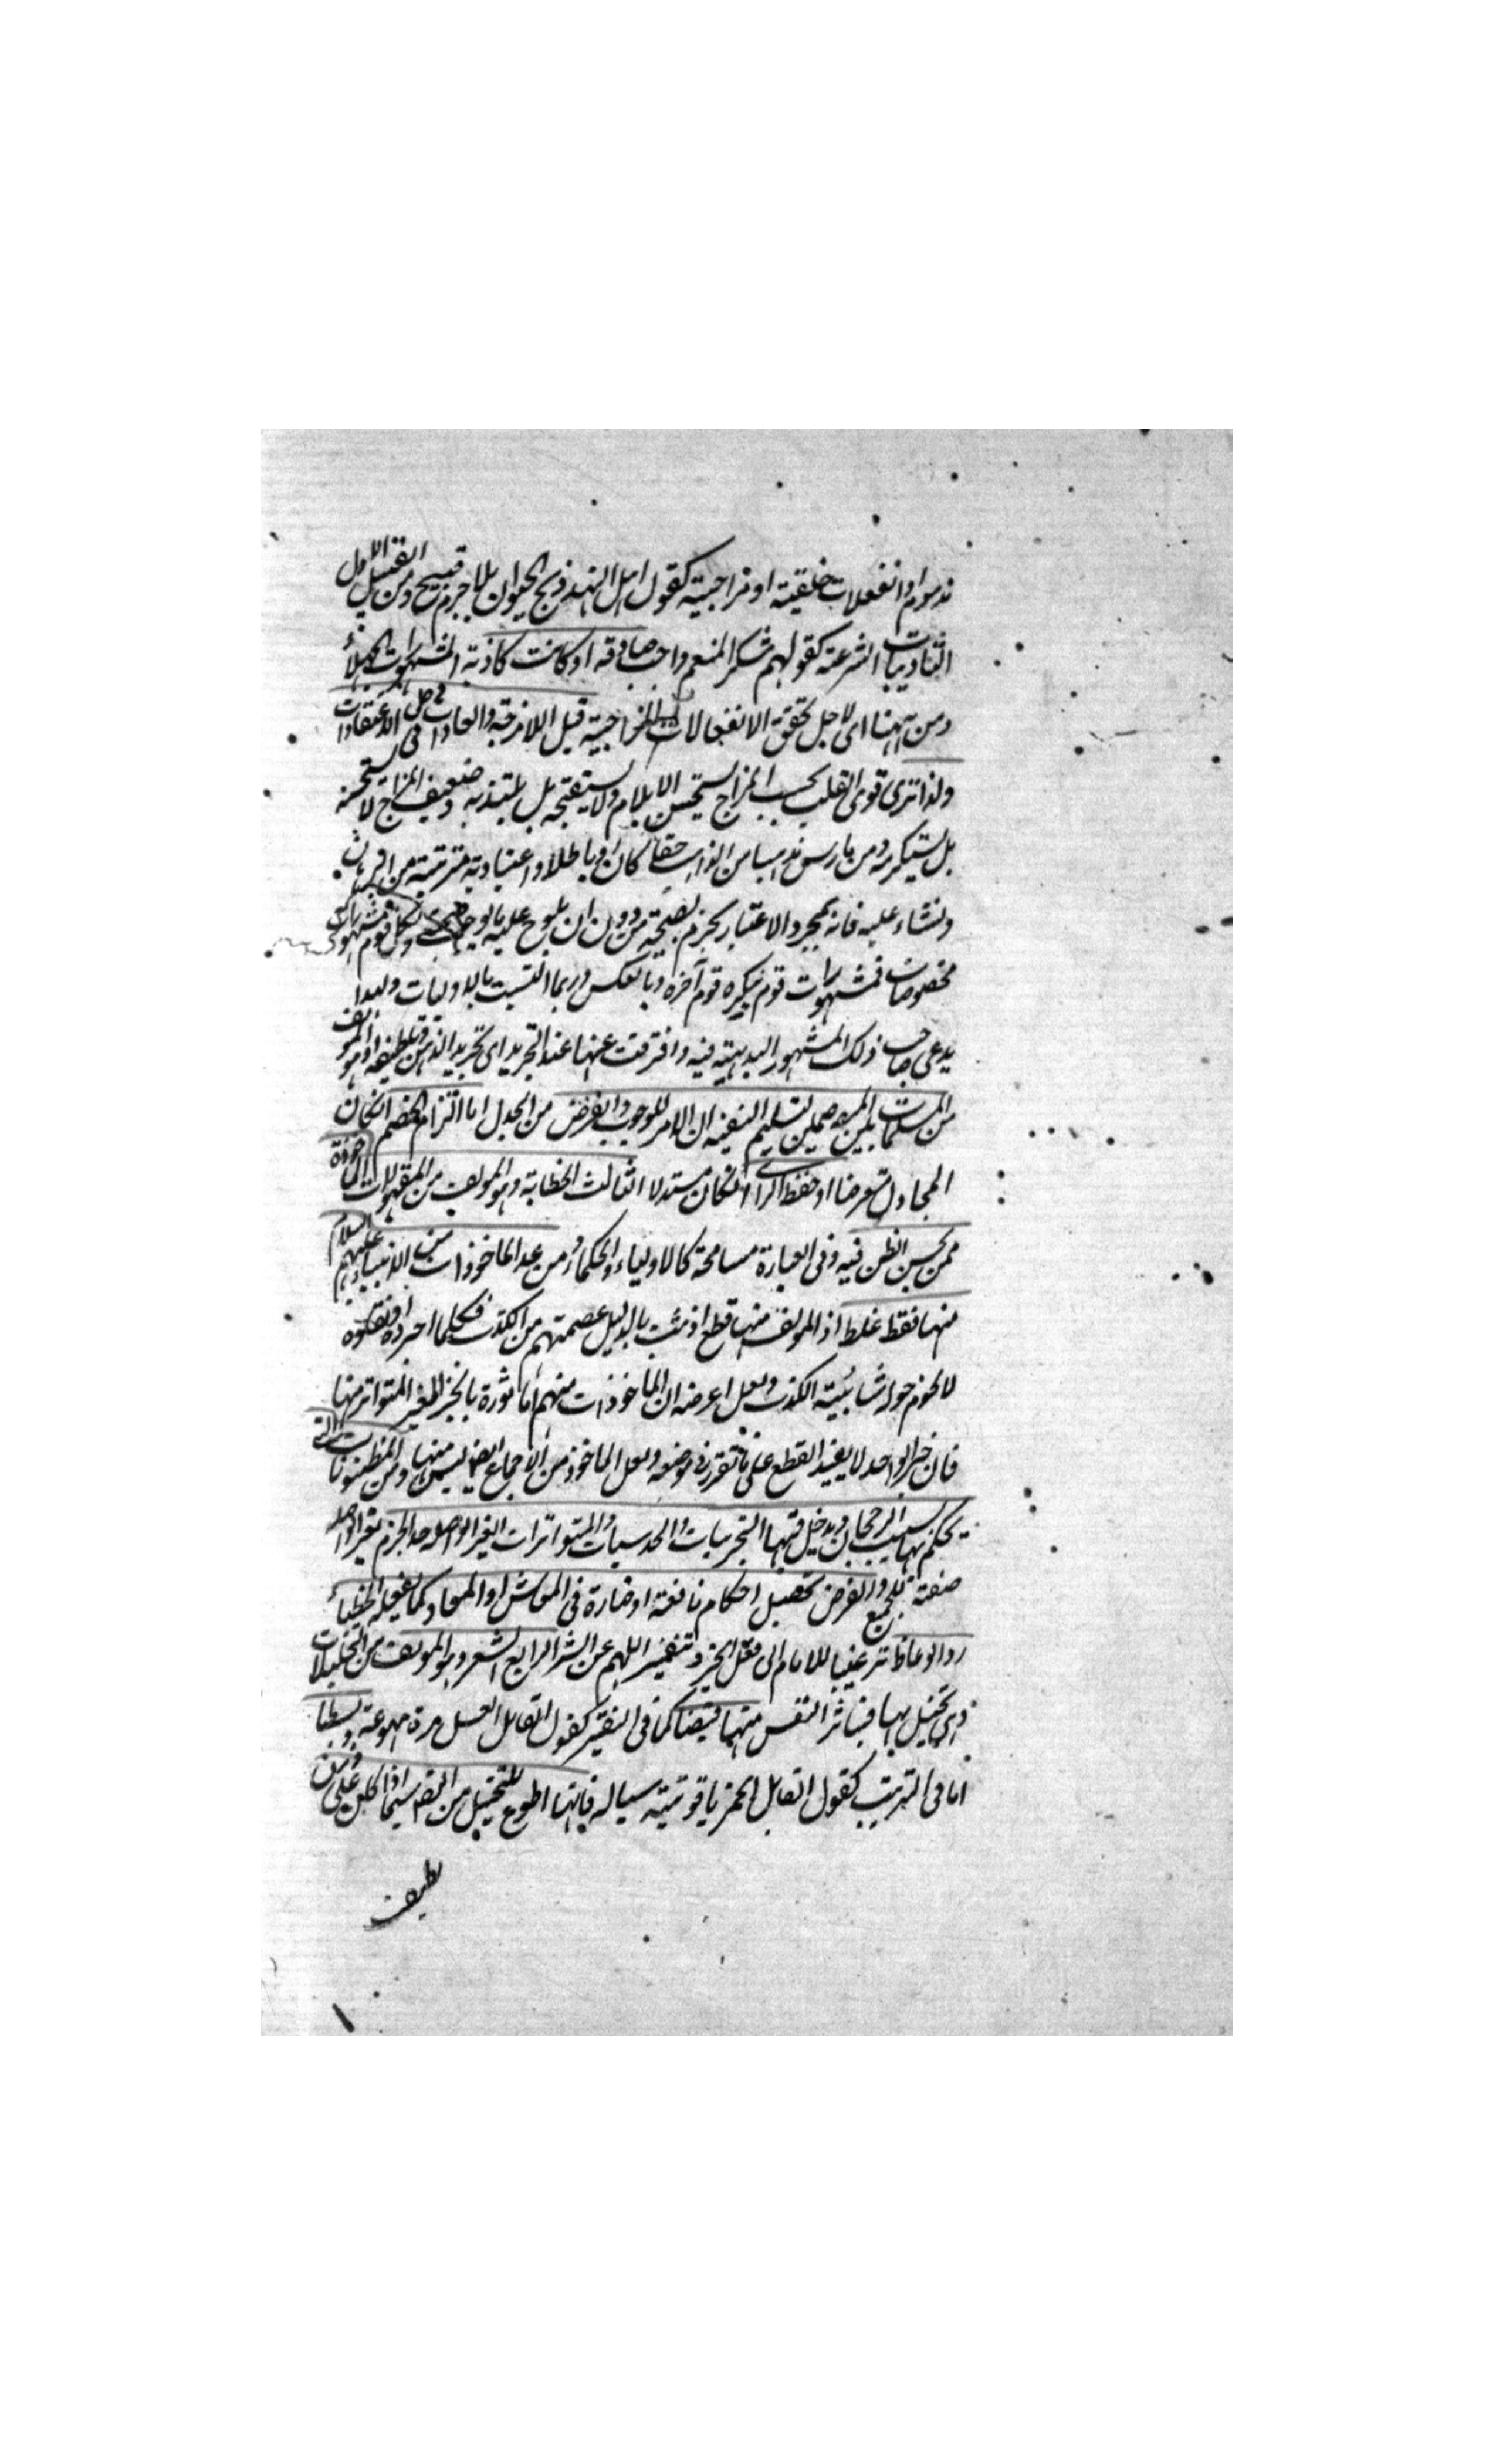 مذموم او انفعلات خلقية او مزاجية كقول اهل الهند ذبح الحيوان بلا جرم قبيح ومن القبيل الاول
التاديبات الشرعية كقولهم شكر المنعم واجب صادقة او كانت كاذبة المشهورات
ومن ههنا اى لاجل تحقق الانفعالات المزاجية قيل للامزجة والعادات دخل فى الاعتقادات
ولذا ترى قوى القلب بحسب المزاج يستحسن الايلام ولا يستقبحه بل يلتذ به وضعيف المزاج لا يستحسنه
بل يستكرهه ومن مارس مذهبا من المذاهب حقا كان او باطلا واعتيادية مترتبة من
ونشاء عليه فانه بمجرد الاعتبار يجزم بصحته من دون ان يلوح عليه ولكل قوم مشهورات
مخصوصات فمشهورات قوم ينكره قوم آخره وبالعكس وربما التبست بالاوليات ولهذا
يدعى صاحب ذلك المشهور البديهية فيه وافترقت عنها عند التجريد اى تجريد الذهن او هو المؤلف
من المسلمات بين المتخاصمين كتسليم الفقيه ان الامر للوجوب والغرض من الجدل اما الزام الخصم انكان
المجادل معترضا او حفظ الراى انكان مستدلا الثالث الخطابة وهو المؤلف من المقبولات الماخوذة
ممن يحسن الظن فيه وفى العبارة مسامحة كالاولياء والحكماء ومن عد الماخوذات من الانبياء عليهم السلام
منها فقط غلط اذ المؤلف منها قطع اذ ثبت بالدليل عصمتهم من الكذب فكلما اخبروه
لا يحوم حوله شائبة الكذب ولعل غرضه ان الماخوذات منهم الماثورة بالخبر الغير المتواتر منها
فان خبر الواحد لا يفيد القطع على ما تقرر فى موضعه ولعل الماخوذ من الاجماع ايضا ليس منها ومن المظنونات التى
يحكم بها بسبب الرجحان ويدخل فيها التجربيات والحدسيات والمتواترات الغير الواصلة حد الجزم
صفة للجميع والغرض تحصيل احكام نافعة او ضارة فى المعاش او المعاد كما يفعله الخطباء
والوعاظ ترغيبا للانام الى فعل الخير وتنفيرا لهم عن الشر الرابع الشعر وهو المؤلف من المخيلات
وهى تخيل بها فيتاثر النفس منها قبضا كما فى التنفير كقول القائل العسل مرة مهوعة وبسطا
اما فى الترغيب كقول القائل الخمر ياقوتية سيالة فانها اطوع للتخييل من التصديق سيما اذا كان على وزن
لطيف